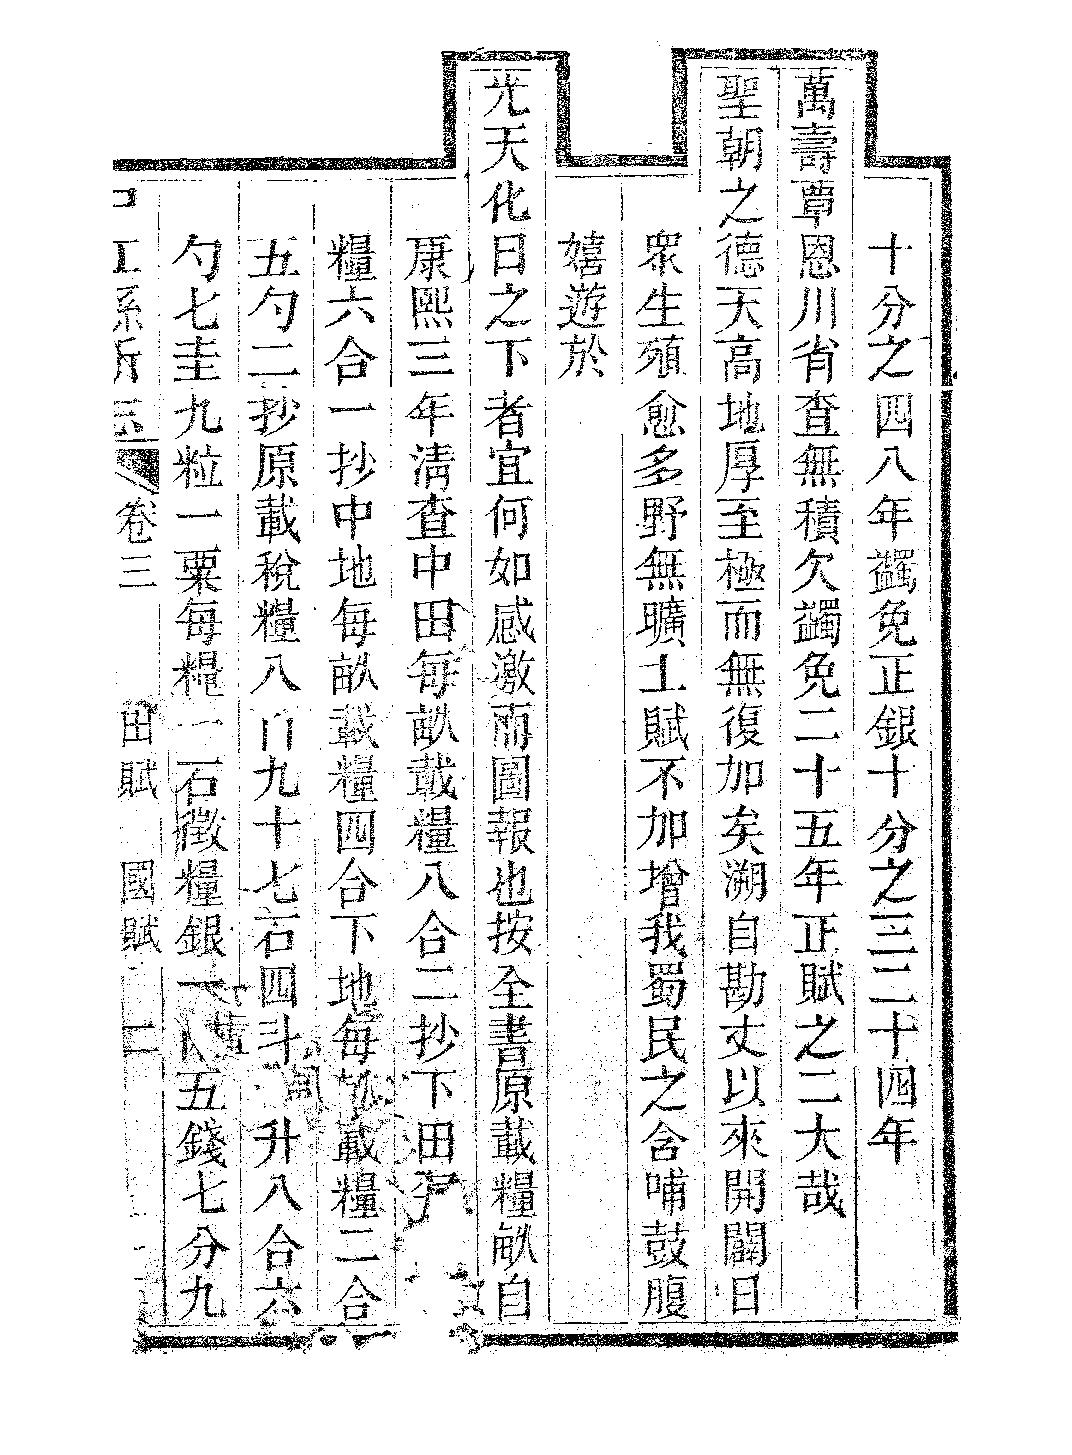 十分之四八年蠲免正銀十分之三二十四年
萬壽覃恩川省查無積欠蠲免二十五年正賦之二大哉
聖朝之德天高地厚至極而無復加矣溯自勘丈以來開闢日
衆生殖愈多野無曠土賦不加增我蜀民之含哺鼓腹
嬉遊於
光天化日之下者宜何如感激而圖報也按全書原載糧畝自
康熙三年清查中田每畝載糧八合二抄下田
糧六合一抄中地每畝載糧四合下地每畝載糧二合
五勺二抄原載稅糧八百九十七石四斗 升八合六
勺七圭九粒一粟每糧一石徵糧銀一 五錢七分九
中江縣新志 卷三 田賦 國賦 二